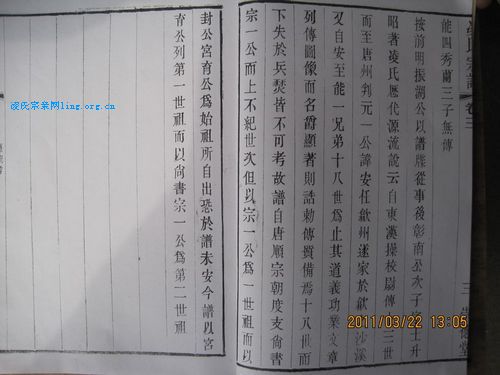 能四秀蘭三子無傳
按前明振湖公以譜牒從事後彰南公次子
昭著凌氏歷代源流說云自東漢操校尉傳十三世
而至唐州判元一公諱安任歙州遂家於歙沙溪
又自安至能一兄弟十八世爲止其道義功業文章
列傳圖像而名爵顯著則誥勅傳贊備焉十八世而
下失於兵焚皆不可考故譜自唐順宗朝度支尚書
宗一公而上不紀世次但以宗一公爲一世祖而以
封公宮育公爲始祖所自出恐於譜未安今譜以宮
育公列第一世祖而以尚書宗一公爲第二世祖
氏宗譜 卷三
三
凌氏宗亲网ling.org.cn
2011/03/22 13:05